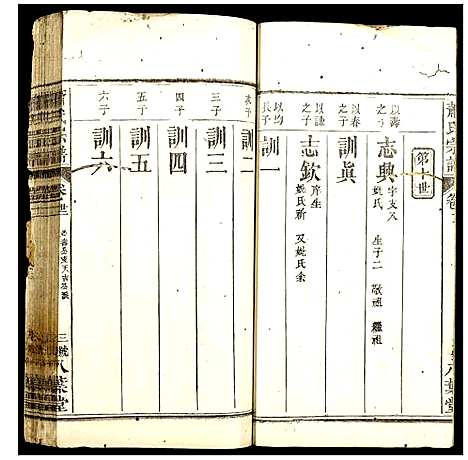 蕭氏宗譜
第十世
以壽之子
志興
字支入
姚氏 生子二 敬祖 繼祖
以春之子
訓眞
以謙之子
志欽
庠生
姚氏新 又姚氏余
以均長子
訓一
次子
訓二
三子
訓三
四子
訓四
五子
訓五
六子
訓六
三號
八葉堂
八葉堂